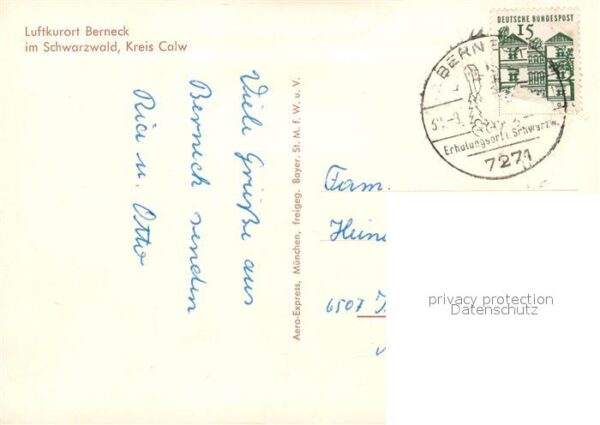 Luftkurort Berneck
im Schwarzwald, Kreis Calw
Viele Grüße aus
Berneck senden
Rica u. Otto
Aero-Express, München, freigeg. Bayer. St. M. f. W. u. V.
DEUTSCHE BUNDESPOST
15
BERN
Erholungsort i. Schwarzw.
7271
Fam.
Hein
6507
privacy protection
Datenschutz